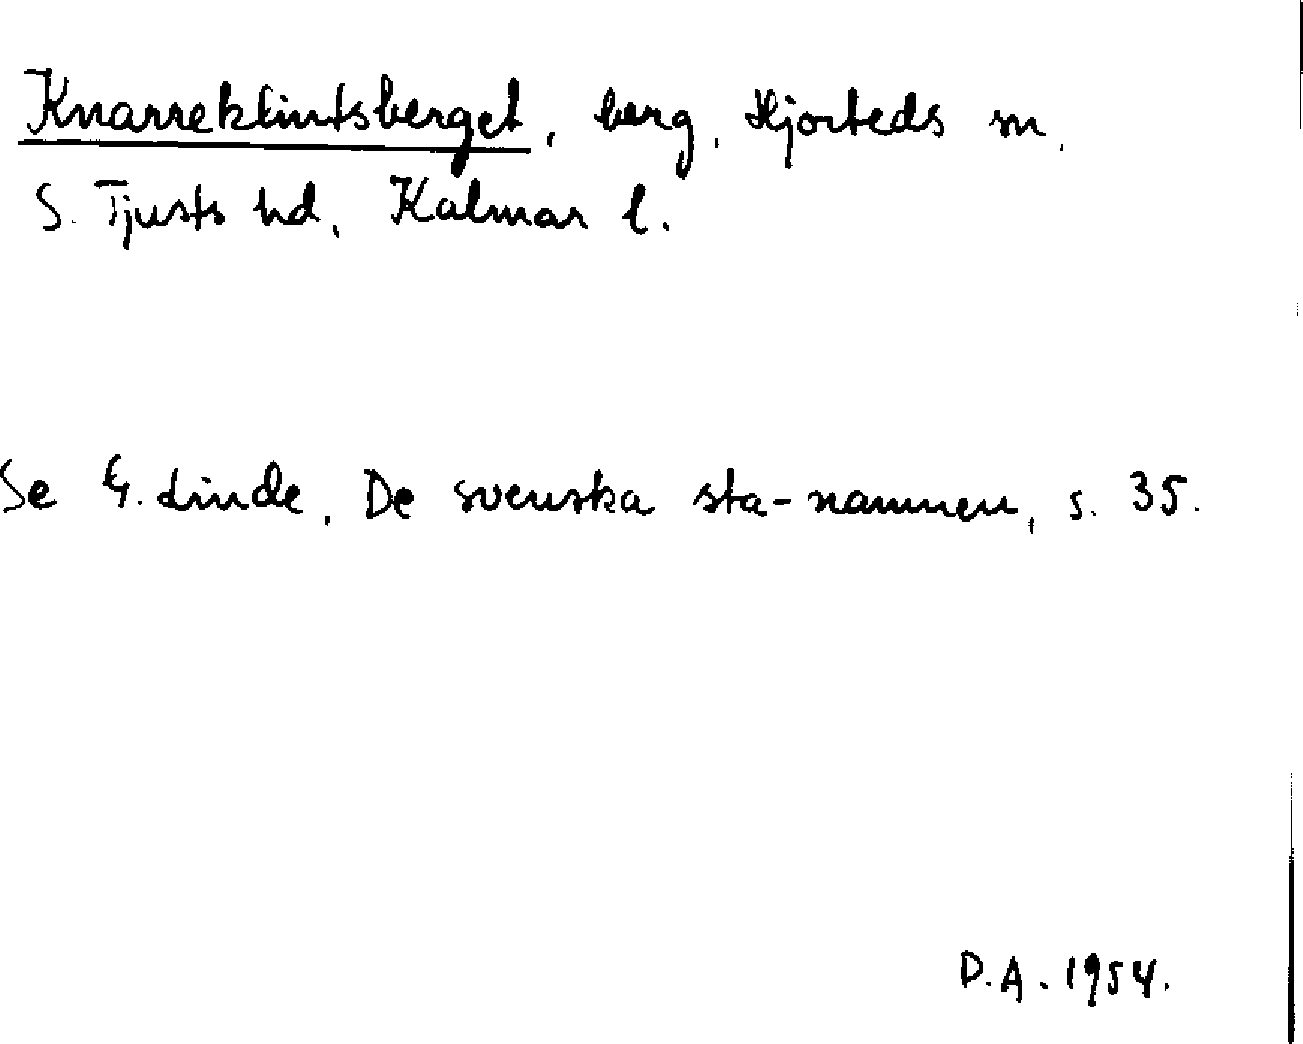 Knarreklintsberget, berg, Hjorteds sn,
S. Tjusts hd, Kalmar l.
Se G. Linde, De svenska sta-namnen, s. 35.
D.A. 1954.